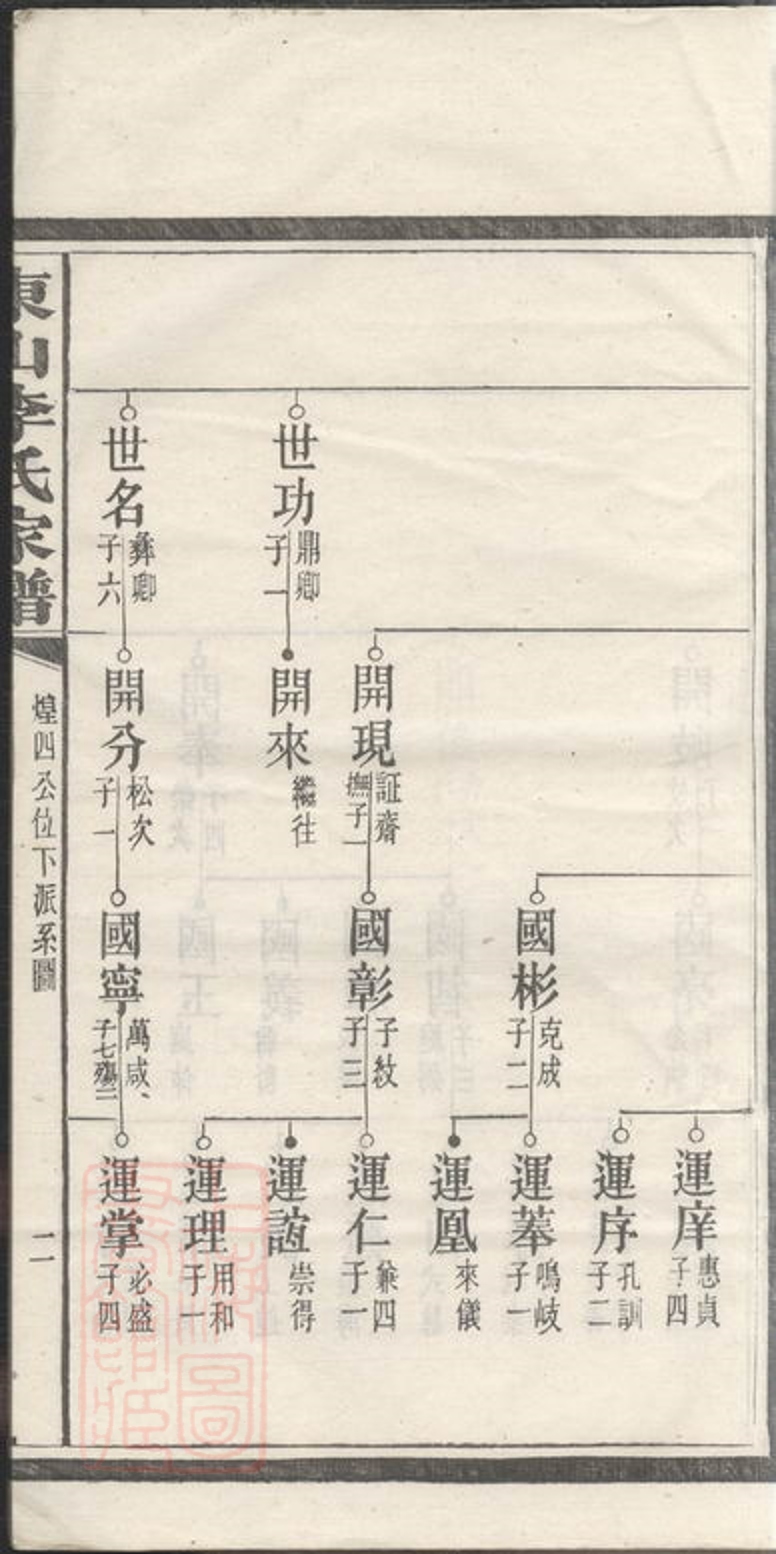 世功
鼎卿
子一
世名
彝卿
子六
開現
証齋
撫子一
開來
繼往
開分
松次
子一
國彬
克成
子二
國彰
子紋
子三
國寧
萬咸
子七殤三
運庠
惠貞
子四
運序
孔訓
子二
運菶
鳴岐
子一
運凰
來儀
運仁
兼四
子一
運誼
崇得
運理
用和
子一
運掌
必盛
子四
東山李氏家譜
煌四公位下派系圖
二